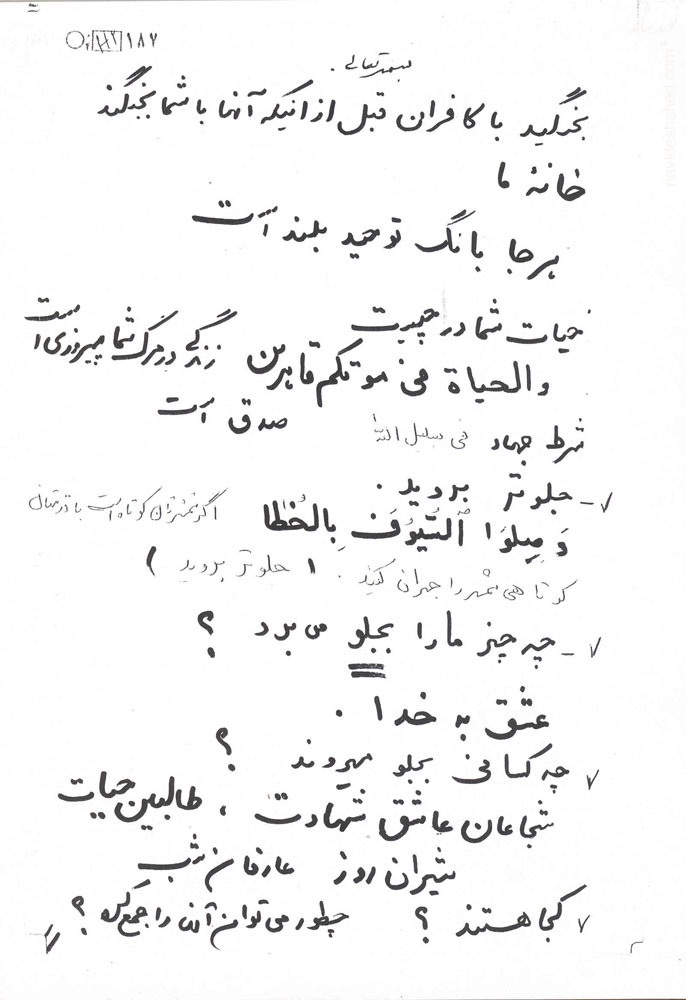 ۱۸۷
بسمه تعالی
بجنگید با کافران قبل از اینکه آنها با شما بجنگند
خانهٔ ما
هرجا بانگ توحید بلند است
حیات شما در چیست
والحیاة فی موتکم قاهرین زندگی در مرگ شما پیروزی است
صدق است
شرط جهاد فی سبیل الله
۷- جلوتر بروید.
وَصِلُوا السُّیُوفَ بِالخُطَا اگر شمشیرتان کوتاه است با قدمتان
کوتاهی شمشیر را جبران کنید. (جلوتر بروید)
۷- چه چیز ما را بجلو می برد ؟
عشق به خدا.
۷ چه کسانی بجلو میروند ؟
شجاعان عاشق شهادت، طالبین حیات
شیران روز عارفان شب
۷ کجا هستند ؟ چطور می توان آنان را جمع کرد ؟
navideshahed.com